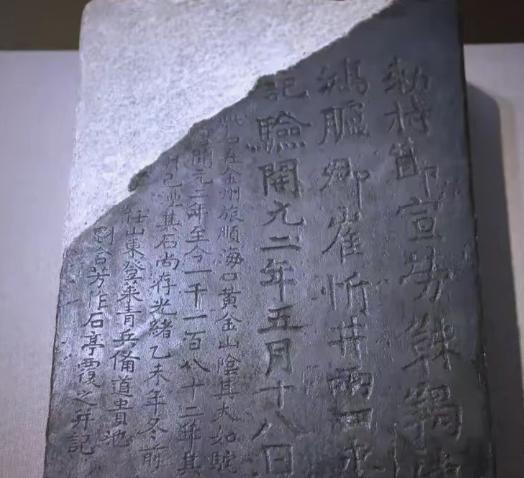 勅持節宣勞靺羯
鴻臚卿崔忻井兩口永
記驗開元二年五月十八日
此石在金州旅順海口黃金山陰其大如駝
開元二年至今一千一百八十二年其
井已湮其石尚存光緒乙未年冬前
任山東登萊青兵備道貴池
劉含芳作石亭覆之并記